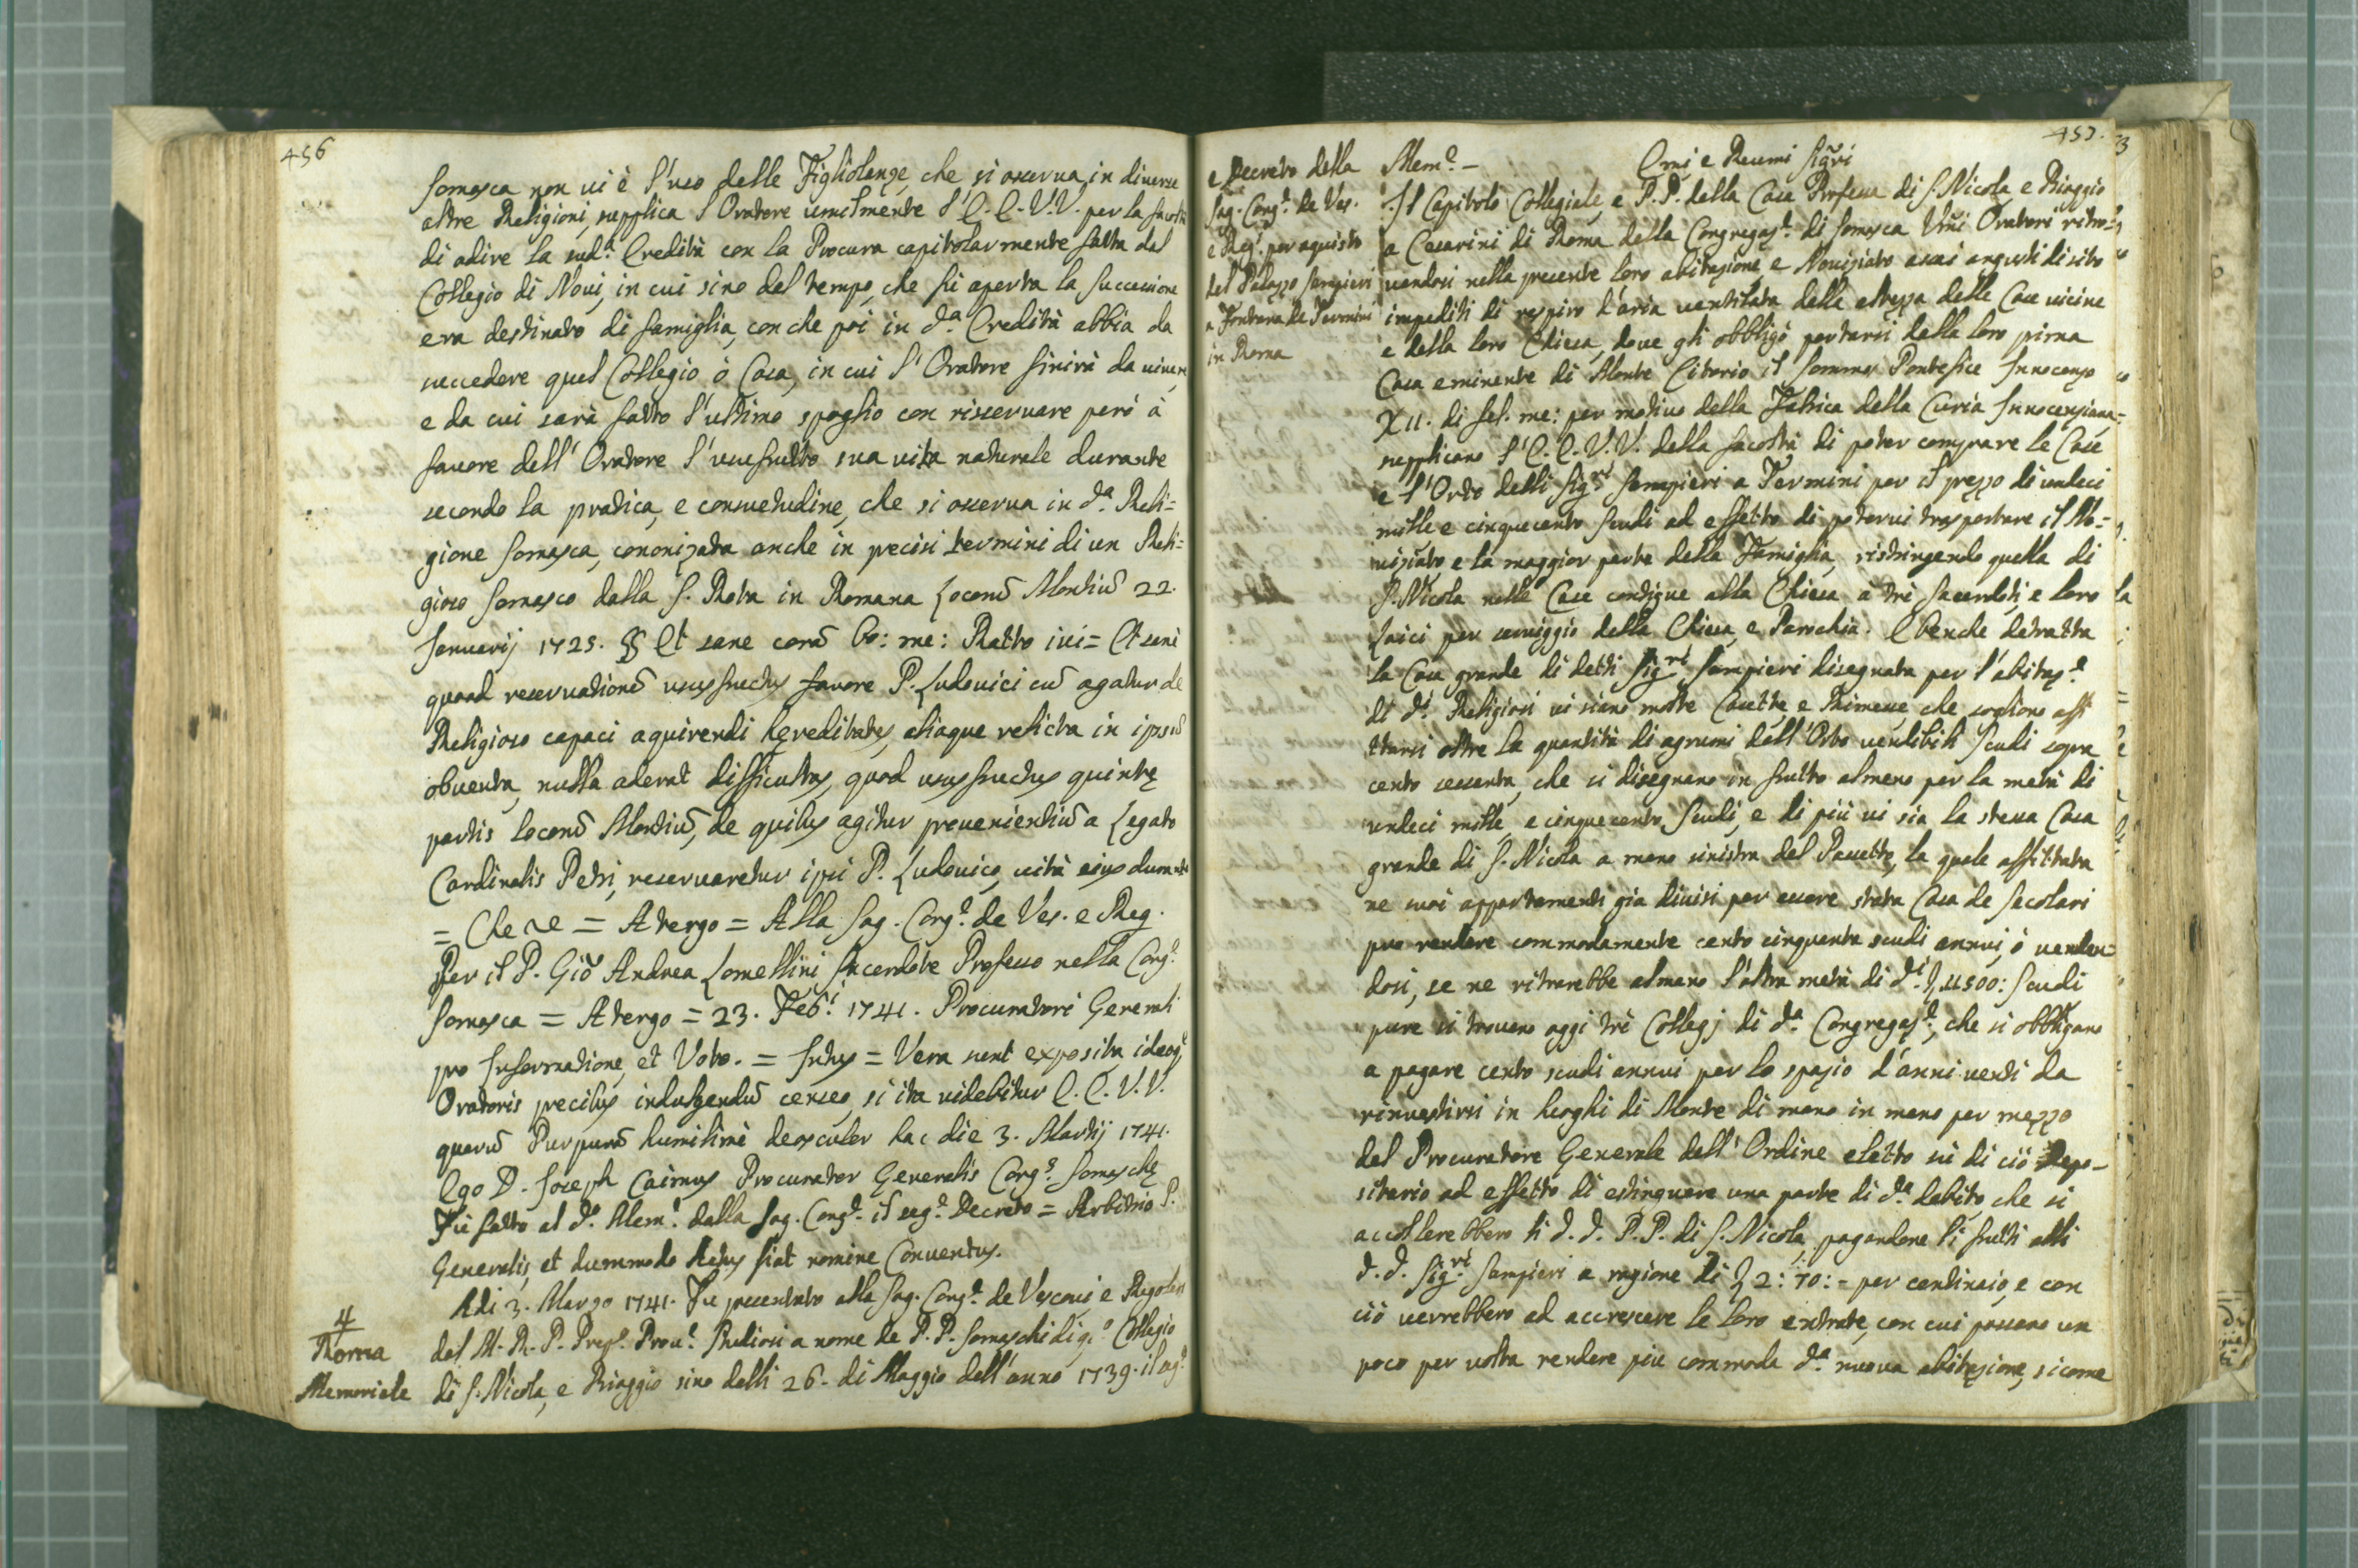 456
Somasca non ui è l'uso delle Figliolanze, che si osserua in diuerse
altre Religioni, supplica l'Oratore umilmente l'E. E. V.V. per la facoltà
di adire la sud.ª Eredità con la Procura capitolarmente fatta dal
Collegio di Noui, in cui sino dal tempo, che fu aperta la successione
era destinato di famiglia, con che poi in d.ª Eredità abbia da
succedere quel Collegio ò Casa, in cui l'Oratore finirà da uiuere
e da cui sarà fatto l'ultimo spoglio con risseruare però à
fauore dell'Oratore l'usufrutto sua uita naturale durante
secondo la pratica, e consuetudine, che si osserua in d.ª Reli=
gione Somasca, cononizata anche in precisi termini di un Reli=
gioso Somasco dalla S. Rota in Romana Locorũ Montiũ 22.
Januarij 1725. §§ Et sane corã bo: me: Ratto iui = Et sanè
quoad reseruationẽ ususfructus fauore P. Ludouici cũ agatur de
Religioso capaci aquirendi hęreditates, aliaque relicta in ipsiũ
obuenta, nulla aderat difficultas, quod ususfructus quintę
partis locorũ Montiũ, de quibus agitur prouenientiũ a Legato
Cardinalis Petri, reseruaretur ipsi P. Ludouico, uitã eius durante
= Che &c = A tergo = Alla Sag. Cong.e de Ves. e Reg.
Per il P. Giõ Andrea Lomellini Sacerdote Professo nella Cong.e
Somasca = A tergo = 23. Feb.i 1741. Procuratori Generali
pro Informatione, et Voto. = Intus = Vera sunt exposita ideoq.
Oratoris precibus indulgendũ censeo, si ita uidebitur E. E. V. V.
quarũ Purpurã humilimè deosculor hac die 3. Martij 1741.
Ego D. Joseph Caimus Procurator Generalis Cong.s Somaschę
Fù fatto al d.o Mem.e dalla Sag. Cong.e il seg.e Decreto = Arbitrio P.
Generalis, et dummodo Actus fiat nomine Conuentus.
Adi 3. Marzo 1741. Fu presentato alla Sag. Cong.e de Vescoui e Regolari
4
Roma
Memoriale
dal M. R. P. Prep.o Prou.e a nome de P. P. Somaschi di q.o Collegio
di S. Nicola, e Biaggio sino dalli 26. di Maggio dell'anno 1739. il seg.e
457.
e Decreto della
Sag. Cong.e de Ves.
e Reg. per aquisto
del Palazzo Sampieri
a Fontana de Termini
in Roma
Mem.e —
Emi e Reumi Sigri
Il Capitolo Collegiale, e P. P. della Casa Professa di S. Nicola e Biaggio
a Cesarini di Roma della Congregaz.e di Somasca Umi Oratori ritro=
uandosi nella presente loro abitazione, e Nouiziato assai angusti di sito
impediti di respiro d'aria uentilata dalla altezza delle Case uicine
e della loro Chiesa, doue gli obbligò portarsi dalla loro prima
Casa eminente di Monte Citorio il Sommo Pontefice Innocenzo
XII. di fel. me: per motiuo della Fabrica della Curia Innocenziana=
supplicano l'E. E. V. V. della facoltà di poter comprare le Case
e l'Orto delli Sig.ri Sampieri a Termini per il prezzo di undeci
mille e cinquecento Scudi ad effetto di poterui trasportare il No=
uiziato e la maggior parte della Famiglia, ristringendo quella di
S. Nicola nelle Case contigue alla Chiesa à trè Sacerdoti, e loro
Laici per seruiggio della Chiesa, e Parochia. E benche detratta
la Casa grande di detti Sig.ri Sampieri disegnata per l'abitaz.e
di d.i Religiosi ui siano molte Casette, e Rimesse che sogliono affi
ttarsi oltre la quantità di agrumi dell'Orto uendibili Scudi sopra
cento sessenta, che si disegnano in frutto almeno per la metà di
undeci mille, e cinquecento Scudi, e di più ui sia la stessa Casa
grande di S. Nicola a mano sinistra del Passetto, la quale affittata
ne suoi appartamenti già diuisi per essere stata Casa de Secolari
puo rendere commodamente cento cinquanta scudi annui, ò uenden=
dosi, se ne ritrarebbe almeno l'altra metà di d.i 11500: Scudi
pure si trouano oggi trè Collegj di d.ª Congregaz.e, che si obbligano
a pagare cento scudi annui per lo spazio d'anni uenti da
rinuestirsi in luoghi di Monte di mano in mano per mezzo
del Procuratore Generale dell'Ordine eletto sù di ciò Depo-
sitario ad effetto di estinguere una parte di d.º debito, che si
accollerebbero li d. d. P. P. di S. Nicola, pagandone li frutti alli
d. d. Sig.ri Sampieri a ragione di 2: 70: = per centinaio, e con
ciò uerrebbero ad accrescere le loro entrate, con cui possano un
poco per uolta rendere piu commoda d.ª nuoua abitazione, sicome